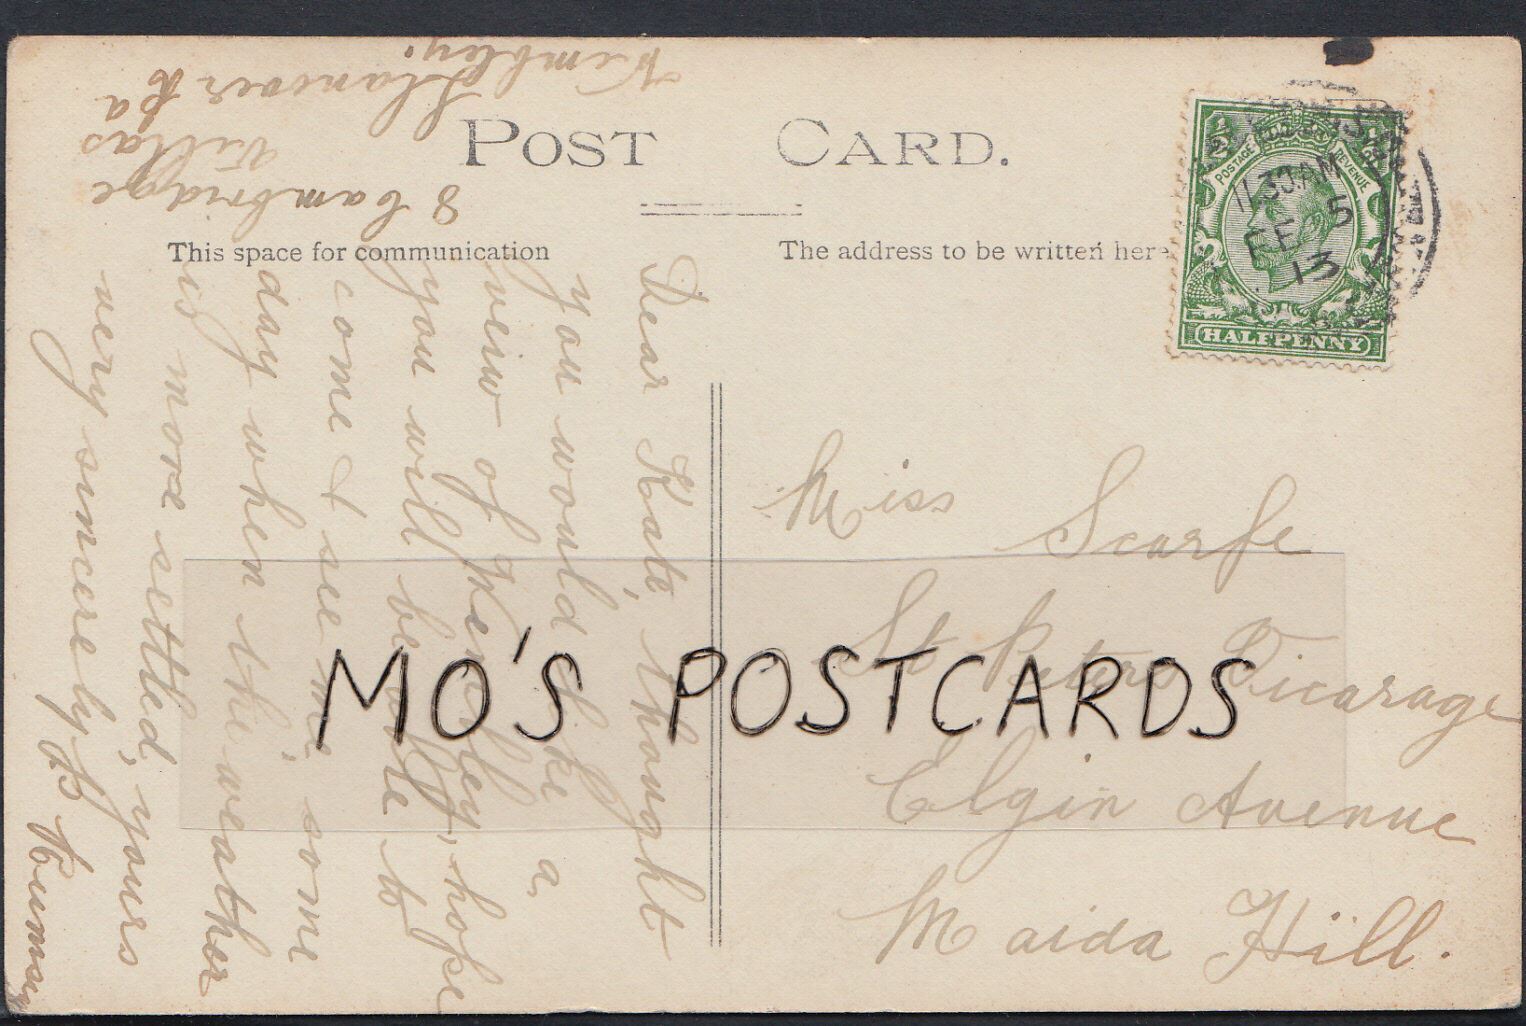 POST CARD.
This space for communication
The address to be written here
POSTAGE REVENUE
HALFPENNY
11.30 AM
FE 5
13
8 Cambridge
Villas
Hanover Rd
Wembley.
Dear Kate, thought
you would like a
veiw of Wembley, hope
you will be able to
come & see me some
day when the weather
is more settled, yours
very sincerely B Rumsey
Miss Scarfe
St Peters Vicarage
Elgin Avenue
Maida Hill.
MO'S POSTCARDS